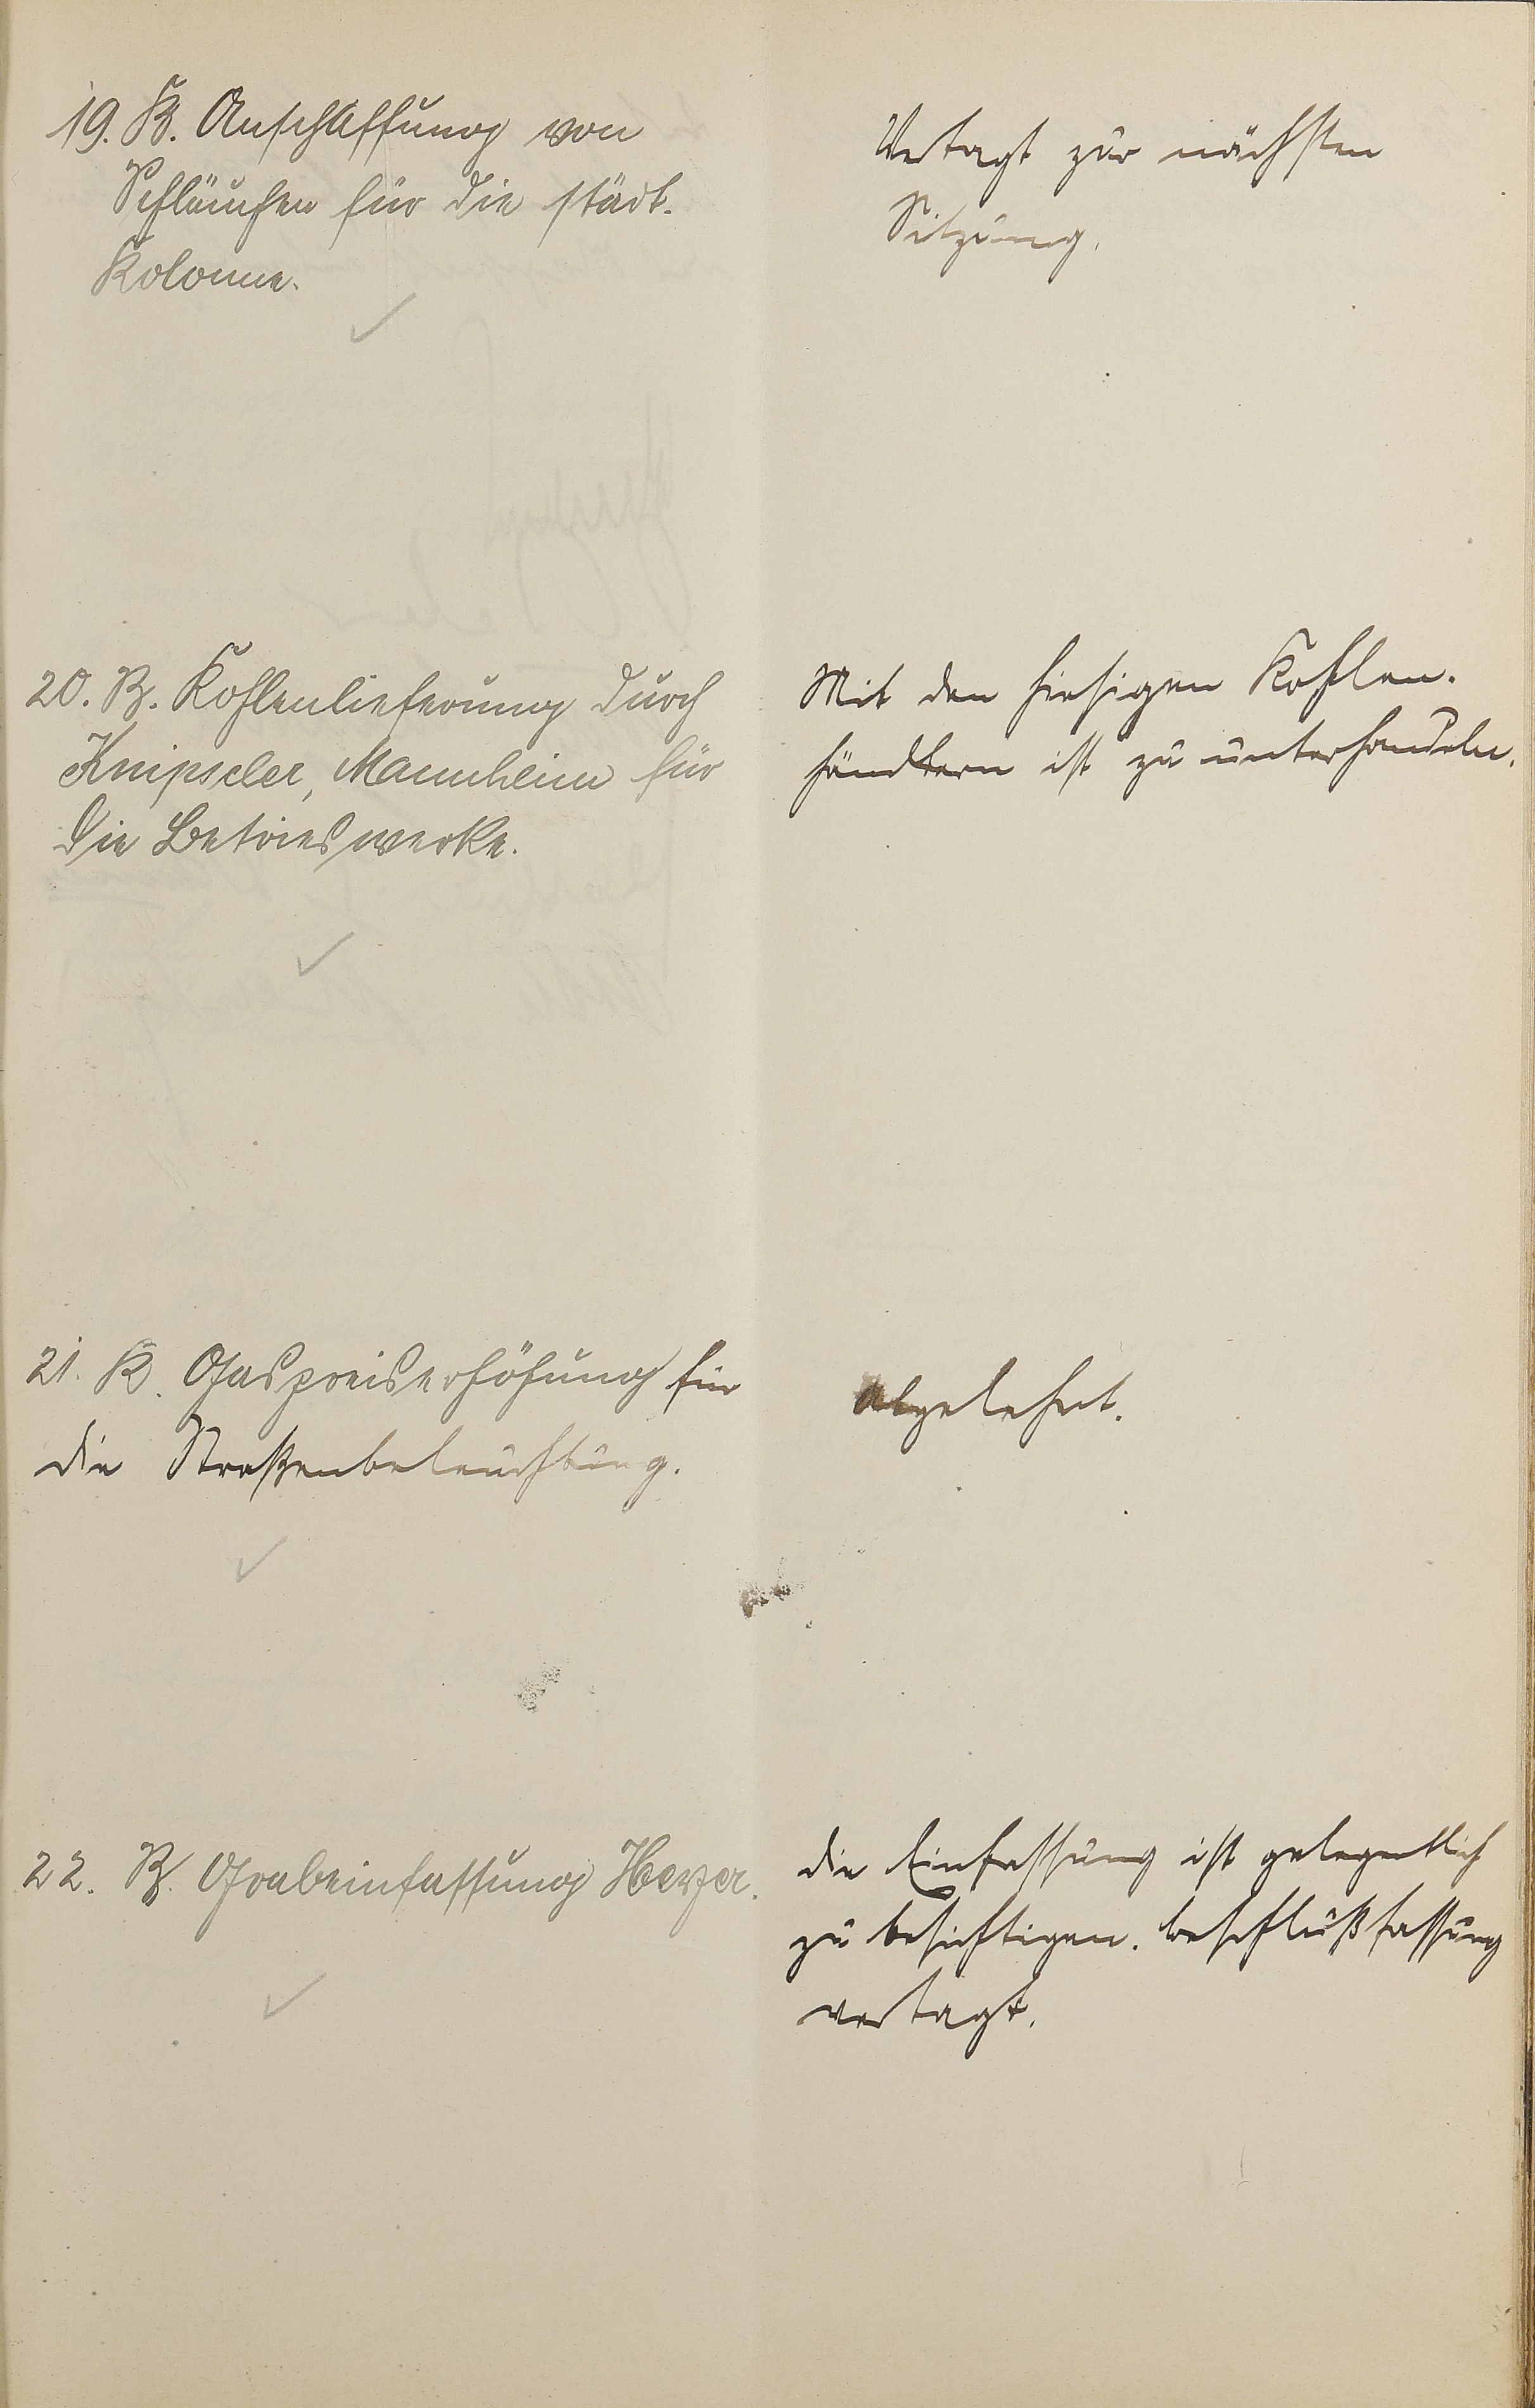 19. B. Anschaffung von
Schläuchen für die städt.
Kolonne.
Vertagt zur nächsten
Sitzung.
20. B. Kohlenlieferung durch
Knipscler, Mannheim für
die Betriebswerke.
Mit den hiesigen Kohlen-
händlern ist zu unterhandeln.
21. B. Gaspreiserhöhung für
die Straßenbeleuchtung.
Abgelehnt.
22. B. Grabeinfassung
die Einfassung ist gelegentlich
zu besichtigen. Beschlußfassung
vertagt.